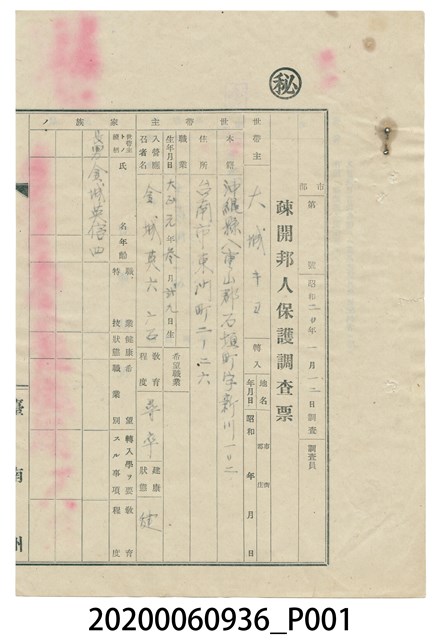 秘
疎開邦人保護調査票
市
郡
第 號 昭和二〇年一月一二日調査 調査員
世帯主 大城 轉入 地名 市街 郡庄 年月日 昭和 年 月 日
世帯主
本籍 沖縄縣八重山郡石垣町字新川一〇二
住所 台南市東門町二ノ二六
職業 希望職業
生年月日 大正元年参月 九日生
入營應召者名 金城英六 教育程度 高卒 健康狀態 健
家族ノ
世帯主トノ續柄 氏名 年齡 特技 職業 健康狀態 希望職業 轉入學ヲ要スル事項 教育程度
長男 金城英 四
臺南州
20200060936_P001